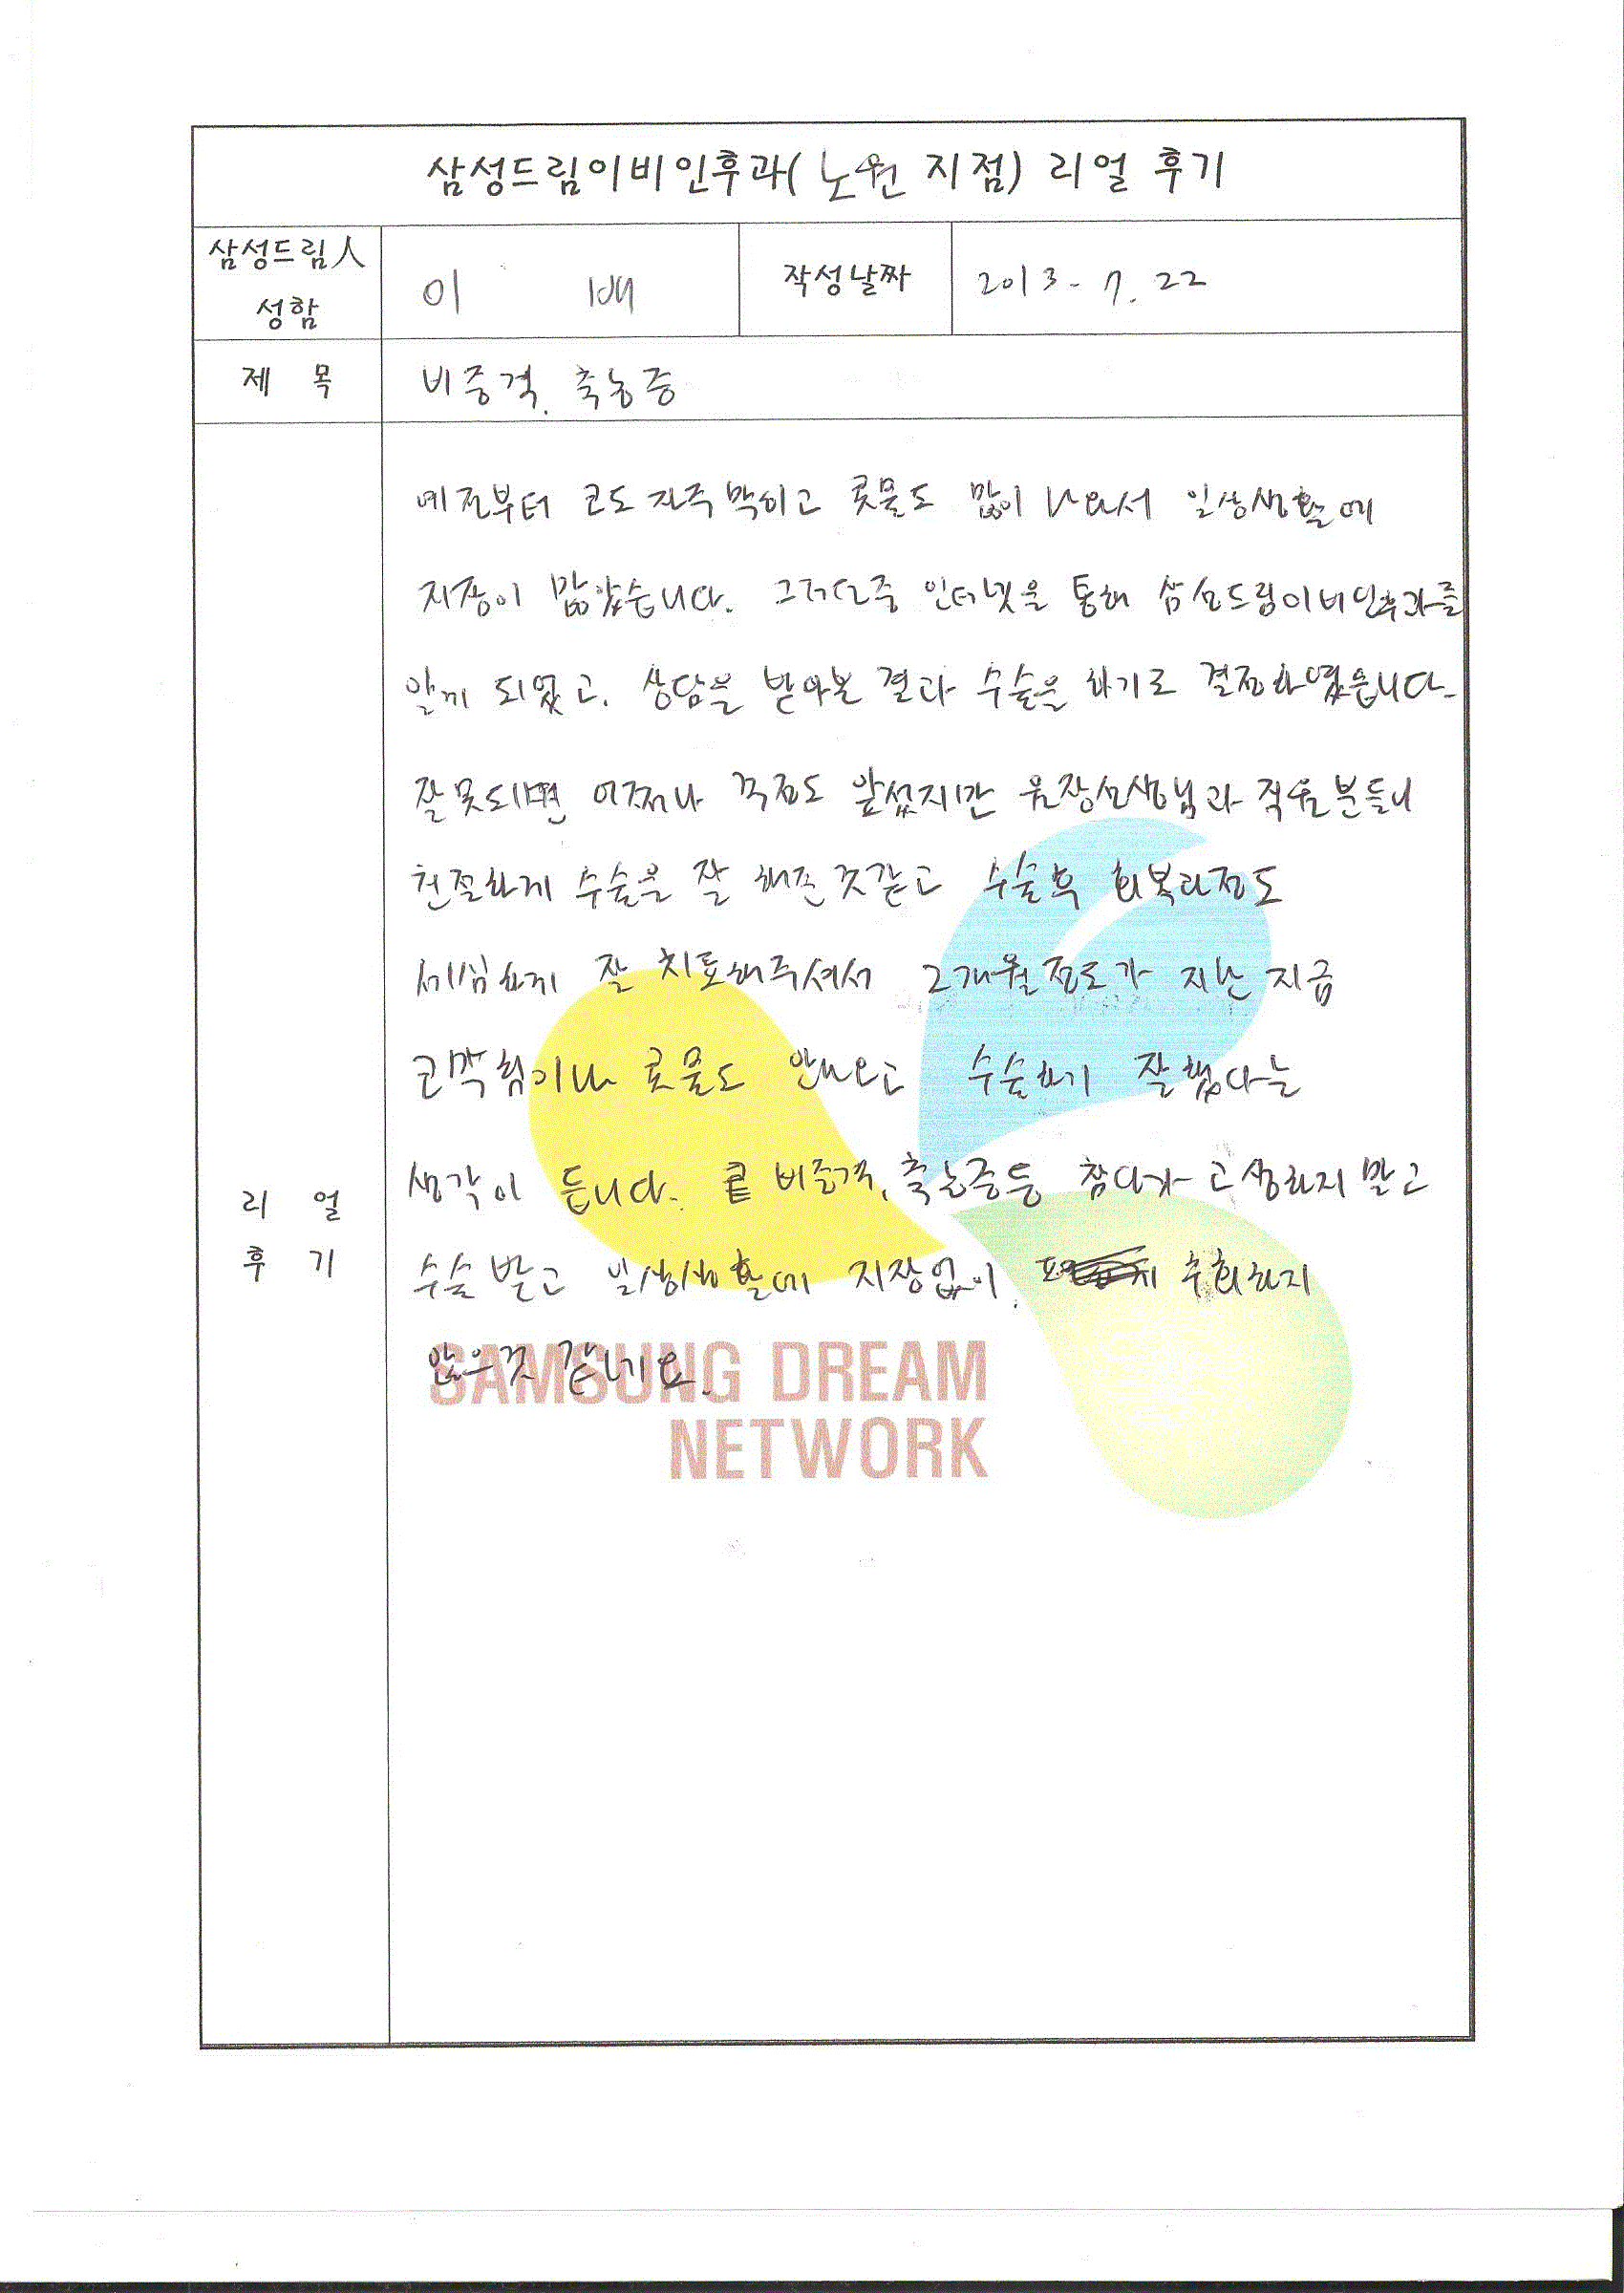 삼성드림이비인후과(노원 지점) 리얼 후기
삼성드림人
성함
이
작성날짜
2013. 7. 22
제 목
비중격, 축농증
예전부터 코도 자주 막히고 콧물도 많이 나와서 일상생활에
지장이 많았습니다. 그러던중 인터넷을 통해 삼성드림이비인후과를
알게 되었고, 상담을 받아본 결과 수술을 하기로 결정하였읍니다.
잘못되면 어쩌나 걱정도 앞섰지만 원장선생님과 직원분들이
친절하게 수술을 잘 해준것같고 수술후 회복과정도
세심하게 잘 치료해주셔서 2개월정도가 지난 지금
코막힘이나 콧물도 안나오고 수술하기 잘했다는
생각이 듭니다. 비중격, 축농증등 참다가 고생하지 말고
수술 받고 일상생활에 지장없이, 후회하지
않을것 같네요.
리 얼
후 기
SAMSUNG DREAM
NETWORK